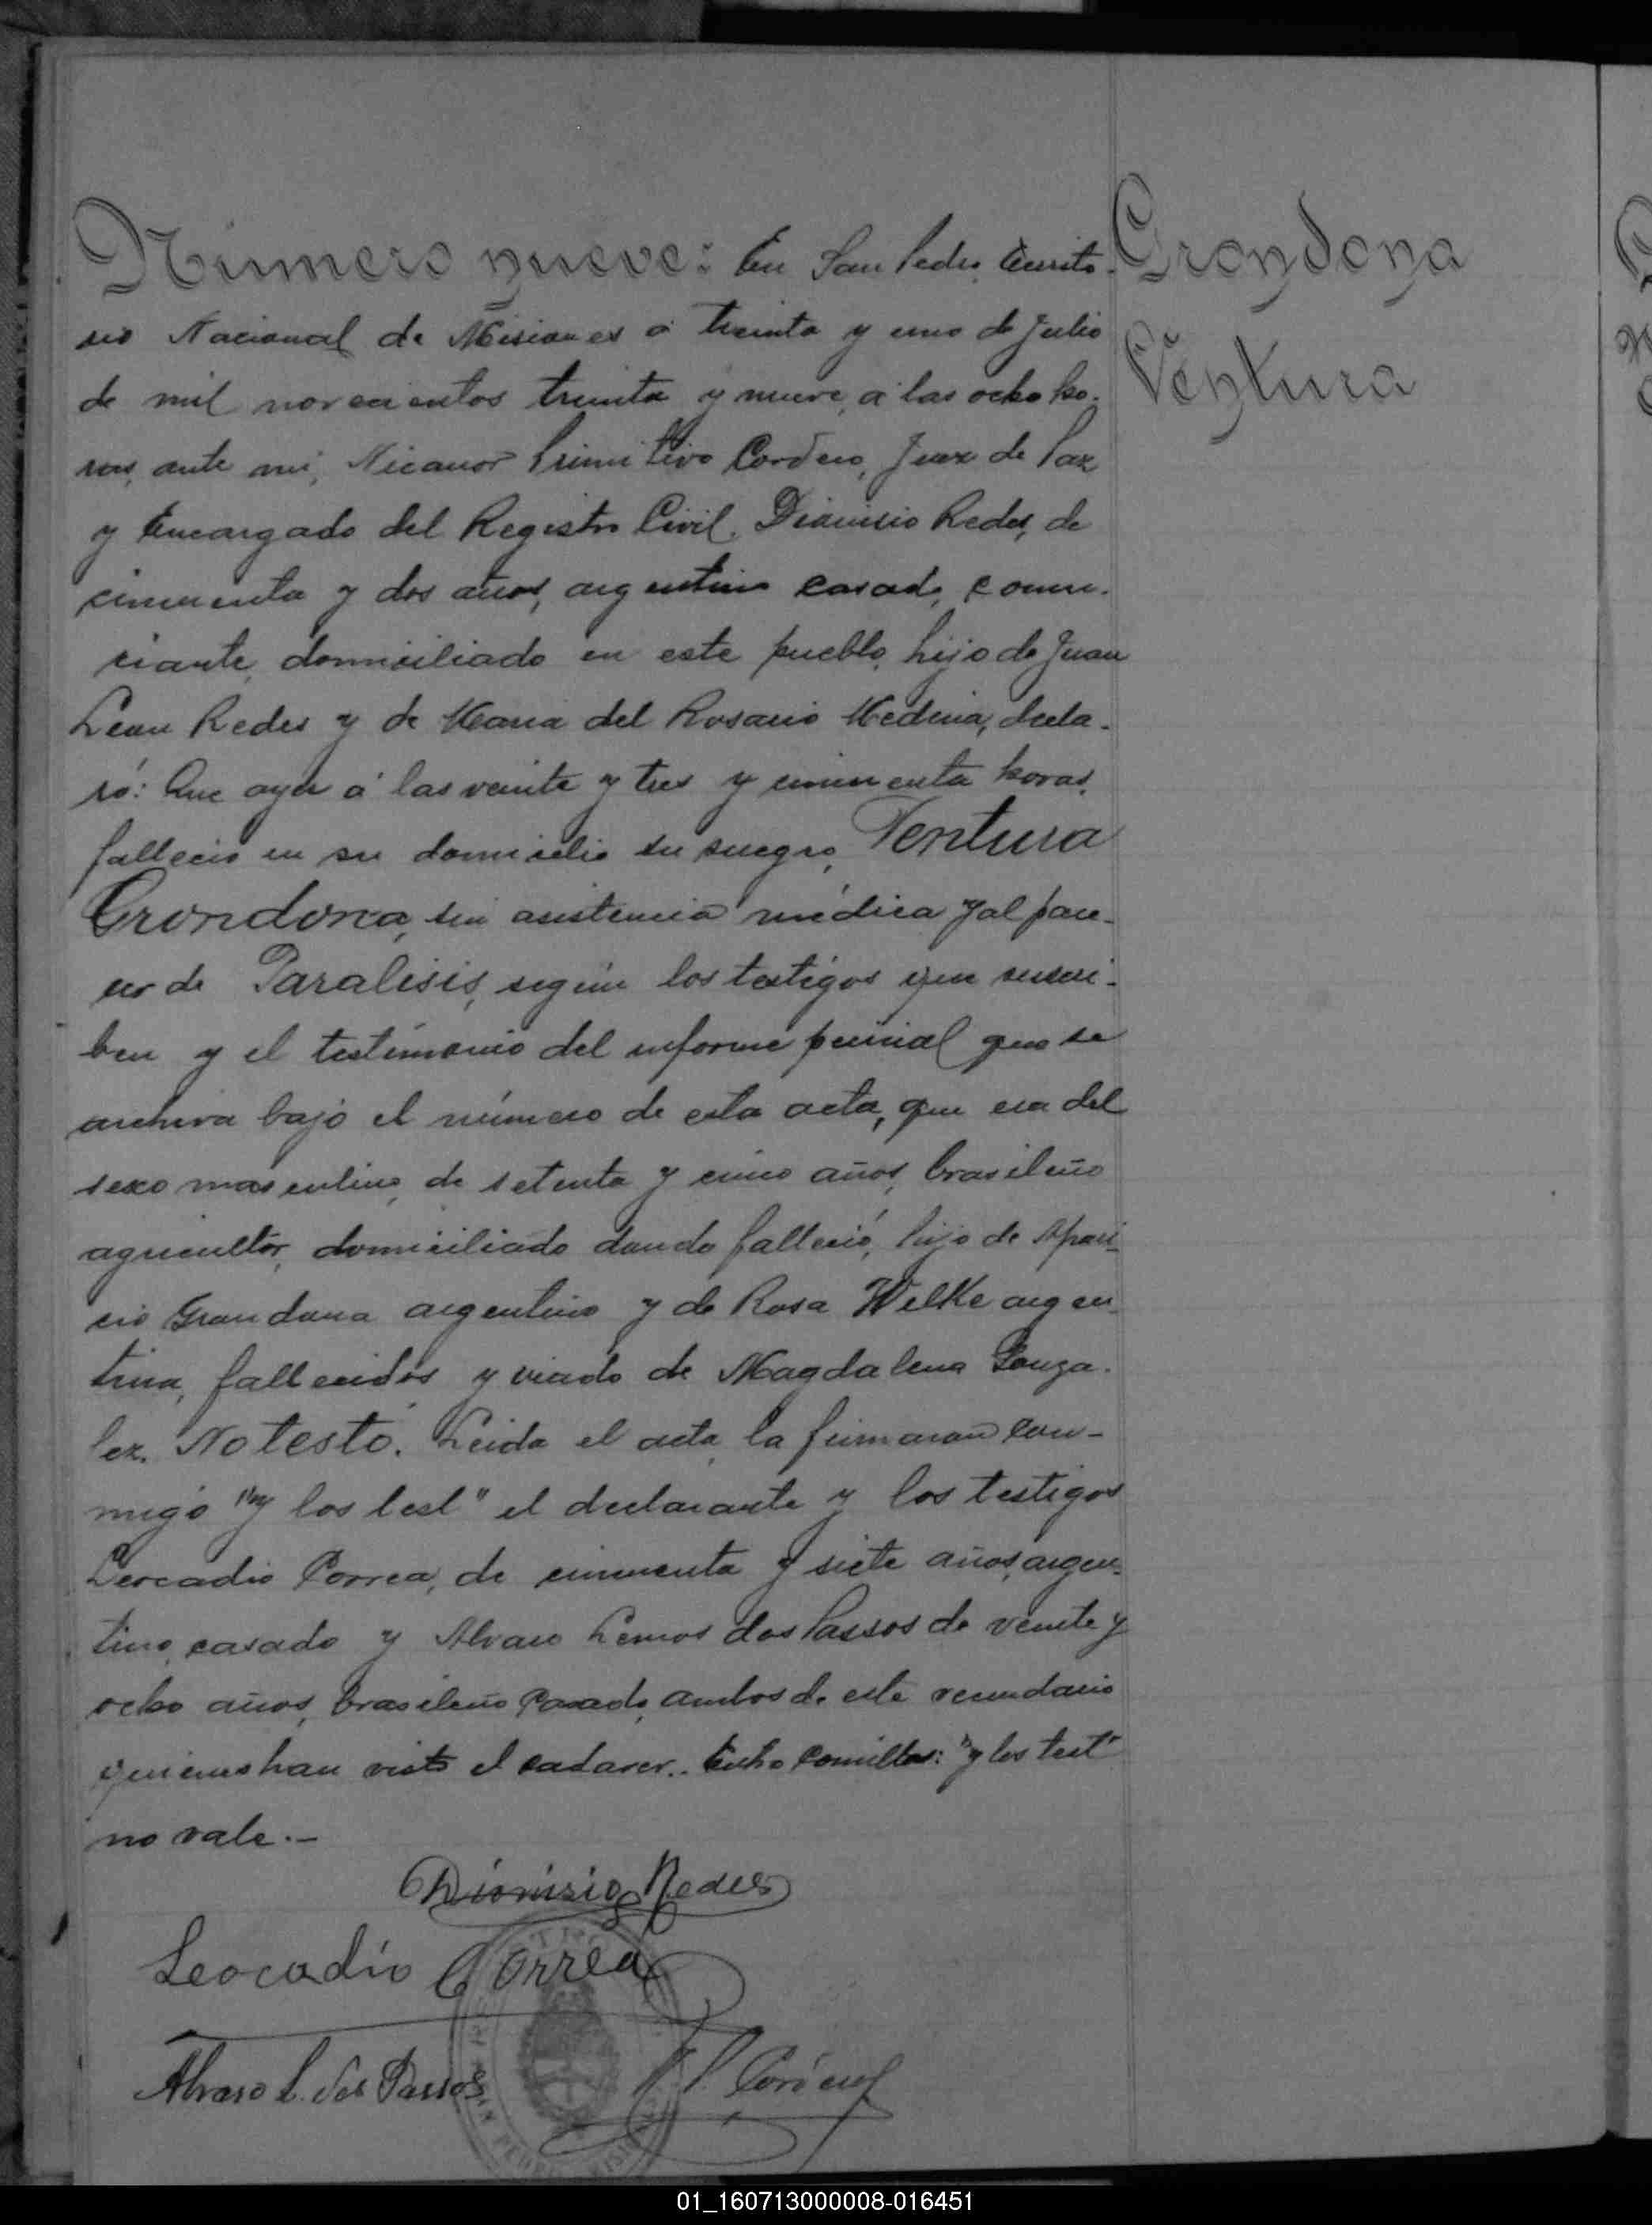 Número nueve: En San Pedro, Territo-
Grondona
rio Nacional de Misiones a treinta y uno de Julio
Ventura
de mil novecientos treinta y nueve, a las ocho ho-
ras, ante mi, Nicanor Primitivo Cordero, Juez de Paz
y Encargado del Registro Civil, Dionisio Redes, de
cincuenta y dos años, argentino casado, comer-
ciante, domiciliado en este pueblo, hijo de Juan
Leon Redes y de Maria del Rosario Medina, decla-
ró: Que ayer a las veinte y tres y cincuenta horas,
falleció en su domicilio su suegro, Ventura
Grondona, sin asistencia médica y al pare-
cer de Paralisis, según los testigos que suscri-
ben y el testimonio del informe pericial que se
archiva bajo el número de esta acta, que era del
sexo masculino, de setenta y cinco años, brasileño
agricultor, domiciliado donde falleció, hijo de Apari-
cio Grondona argentino y de Rosa Welke argen-
tina, fallecidos y viudo de Magdalena Gonza-
lez. No testó. Leida el acta, la firmaron con-
migo "y los test" el declarante y los testigos
Leocadio Correa, de cincuenta y siete años, argen-
tino, casado y Alvaro Lemos dos Passos de veinte y
ocho años, brasileño casado, ambos de este vecindario
quienes han visto el cadaver.. Entre comillas: "y los test"
no vale.-
Dionisio Redes
Leocadio Correa
Alvaro L. dos Passos
N. P. Cordero
01_160713000008-016451